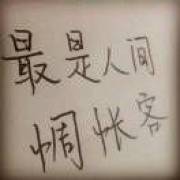 最是人间
惆怅客